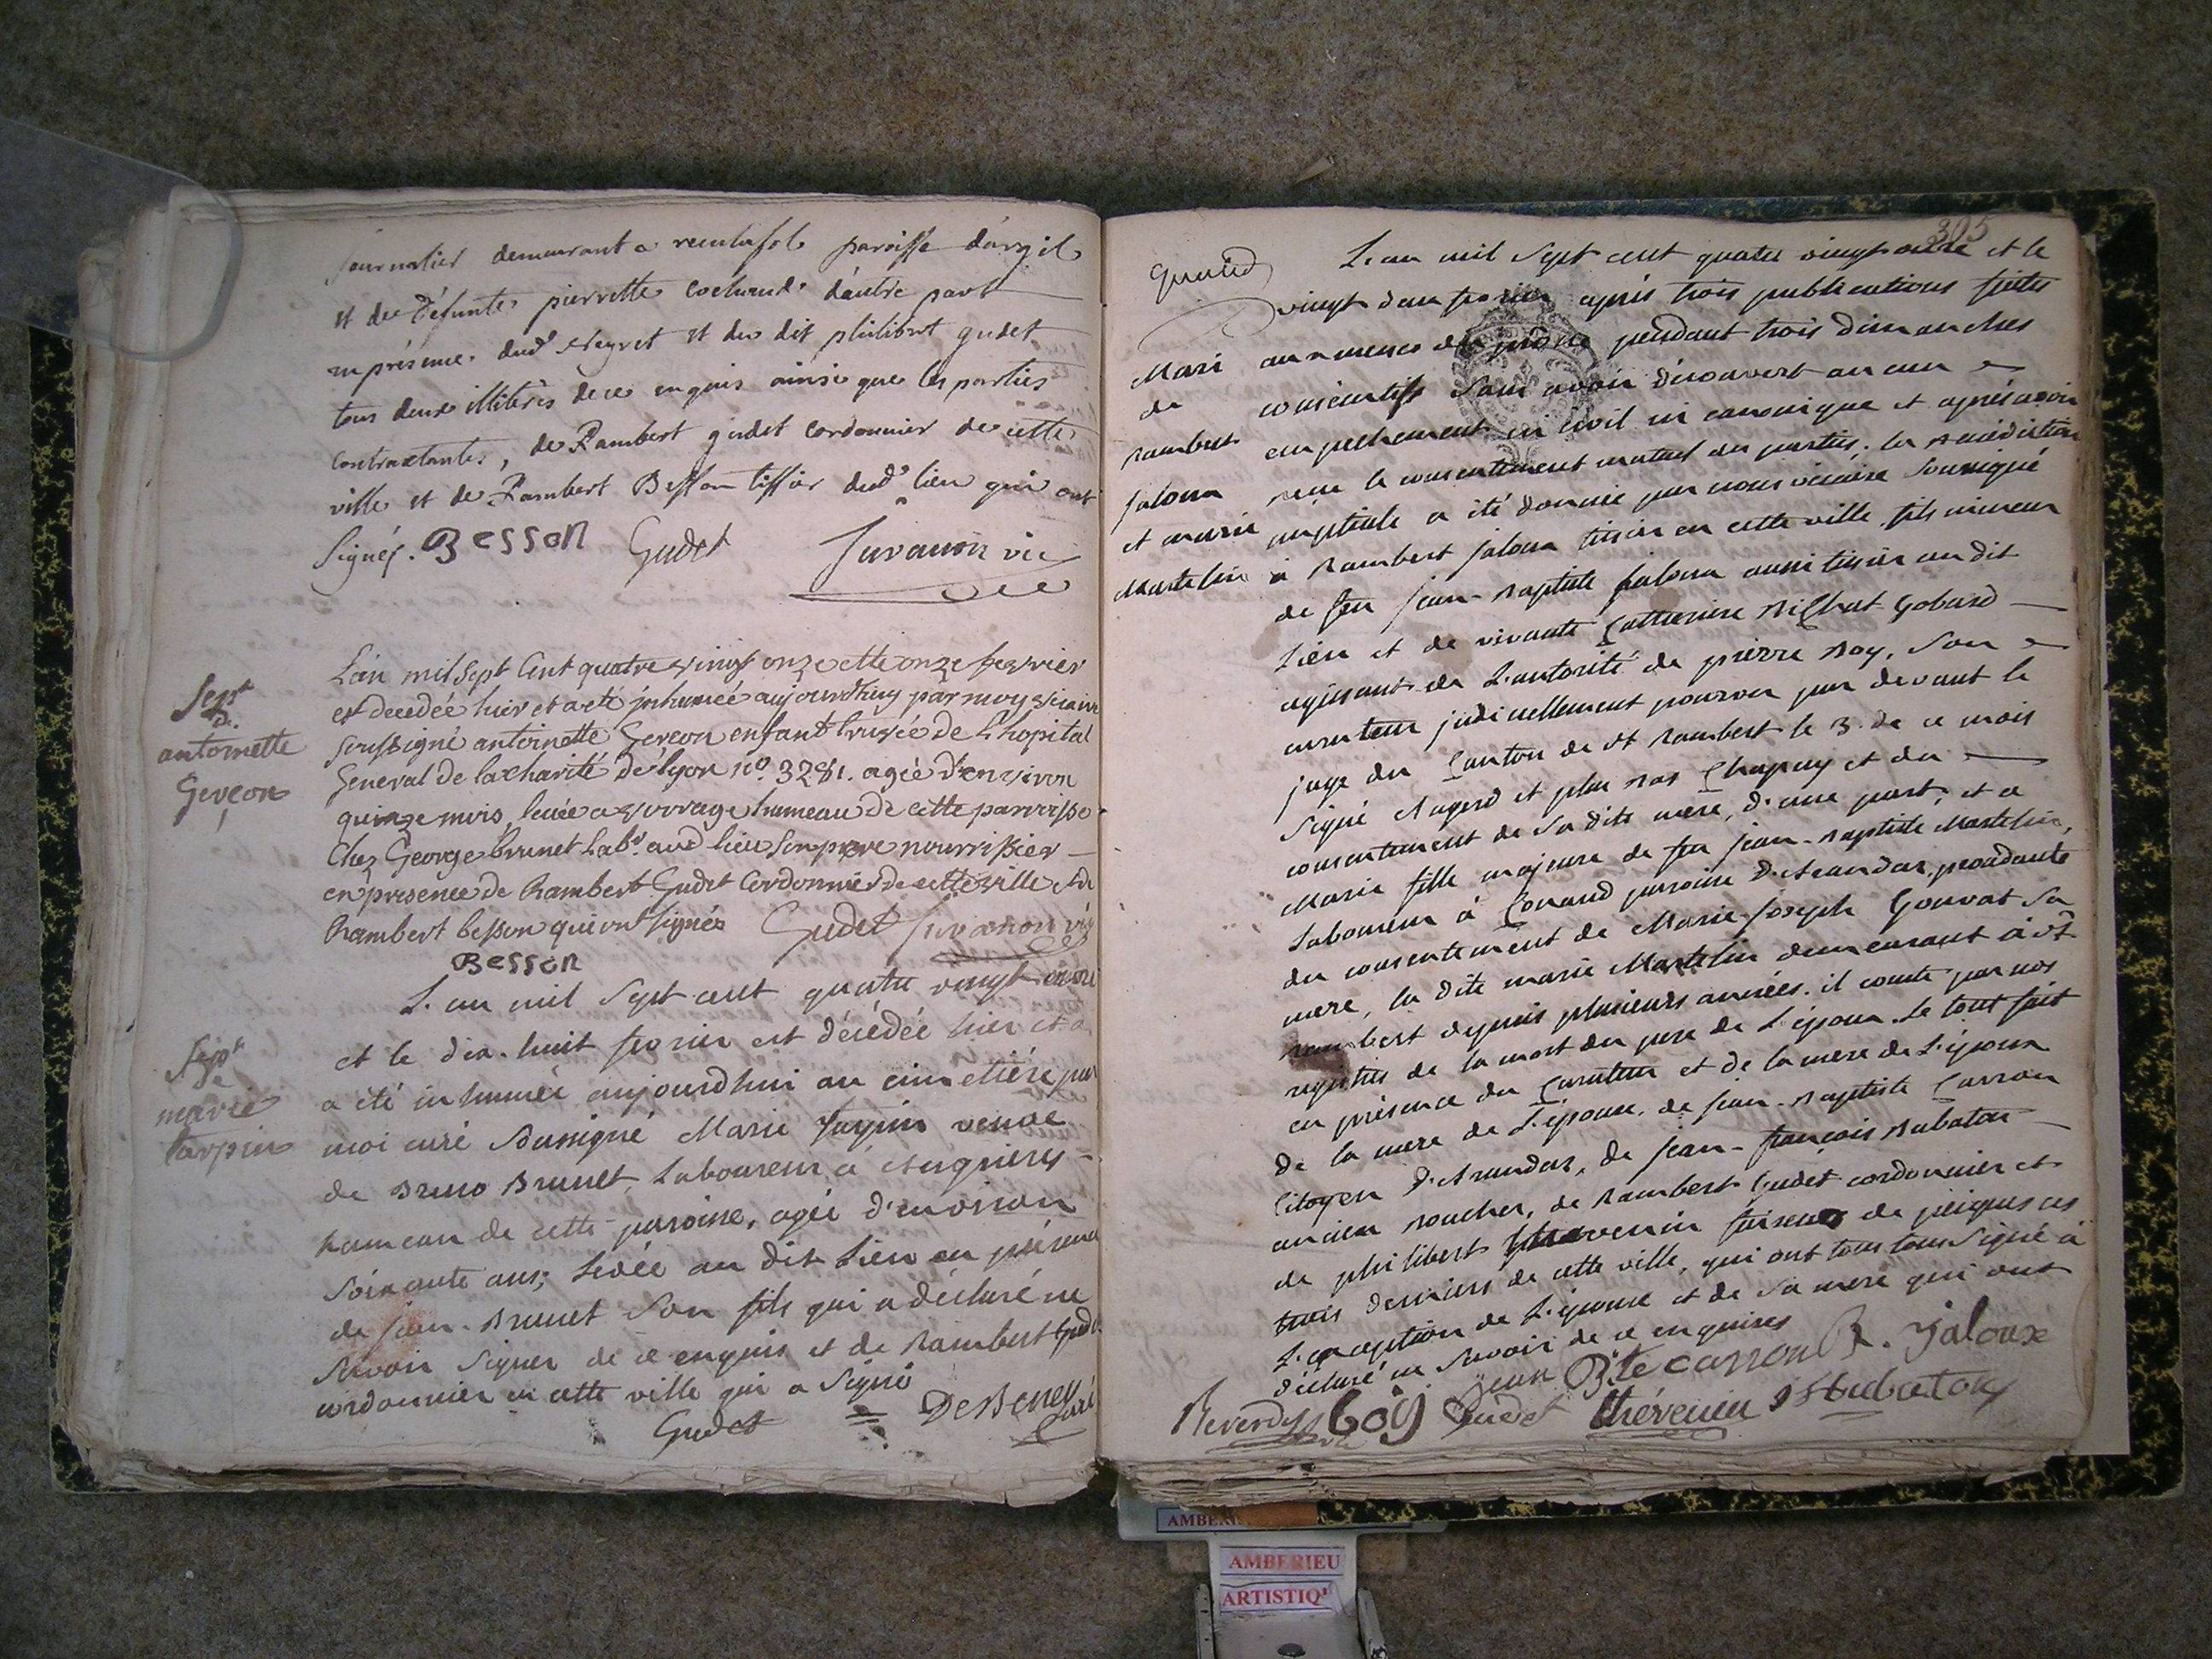 journalier demeurant a paroisse d'argil
et de Défunte pierrette d'autre part
en présence dud Neyret et du dit philibert gudet
tous deux illiterés de ce enquis ainsi que les parties
contractantes, de Rambert gudet cordonnier de cette
ville et de Rambert Besson tissier dud lieu qui ont
Signés. Besson Gudet Juvanon vic
Sept
de
antoinette
Gereon
L'an mil Sept Cent quatre vingt onze et le onze fevrier
est decedée hier et a eté inhumée aujourdhuy par moy vicaire
soussigné antoinette Gereon enfant truvée de L'hopital
General de la charité de lyon no. 3281. agée d'environ
quinze mois, levée a vorage hameau de cette parroisse
Chez George brunet Labr. aud lieu Son pere nourrissier
en presence de Rambert Gudet Cordonnier de cette ville et de
Rambert besson qui ont signés Gudet Juvanon vic
Besson
Sept
de
marie
tarpin
L'an mil Sept cent quatre vingt onze
et le dix-huit fevrier est décédée hier et a
a été inhumée aujourd'hui au cimetière par
moi curé Soussigné Marie tarpin veuve
de Bruno Brunet, Laboureur à
hameau de cette paroisse, agée d'environ
Soixante ans; Levée au dit Lieu en présence
de jean-Brunet Son fils qui a déclaré ne
Savoir Signer de ce enquis et de Rambert Gudet
cordonnier en cette ville qui a Signé
Gudet DeBeney Curé
305
quairé
Mari
de
rambert
jaloux
et marie
Martelin
L'an mil Sept cent quatre vingt onze et le
vingt deux fevrier après trois publications faites
aux messes de prône pendant trois dimanches
consécutifs Sans avoir découvert aucun
empechement ni civil ni canonique et après avoir
reçu le consentement mutuel des parties; la bénédiction
nuptiale a été donnée par nous vicaire Soussigné
à Rambert jaloux tissier en cette ville fils mineur
de feu jean-Baptiste jaloux aussi tissier au dit
Lieu et de vivante Catherine Gobard
agissant de L'autorité de pierre Boy, Son
curateur judiciellement pourvu par devant le
juge du Canton de st Rambert le 3. de ce mois
Signé Augerd et plus bas Chapuy et du
consentement de Sa dite mere, d'une part; et a
Marie fille majeure de feu jean-Baptiste Martelin,
Laboureur à Conand paroisse D'Arandas, procédante
du consentement de Marie-Joseph Gouvat Sa
mere, la dite marie Martelin demeurant à st
rambert depuis plusieurs années. il conste par nos
registres de la mort du pere de L'époux. Le tout fait
en présence du Curateur et de la mere de L'époux
de la mere de L'épouse. de jean-Baptiste Carron
Citoyen D'Arandas, de jean-françois Rubaton
ancien Boucher, de Rambert Gudet cordonnier et
de philibert thevenin faiseur de peignes ces
trois derniers de cette ville, qui ont tous Signé à
L'exception de L'épouse et de Sa mere qui ont
déclaré ne Savoir de ce enquises
jean Bte carron R. jaloux
Reverdy boy Gudet thévenin Rubaton
AMBERIEU
ARTISTIQ'